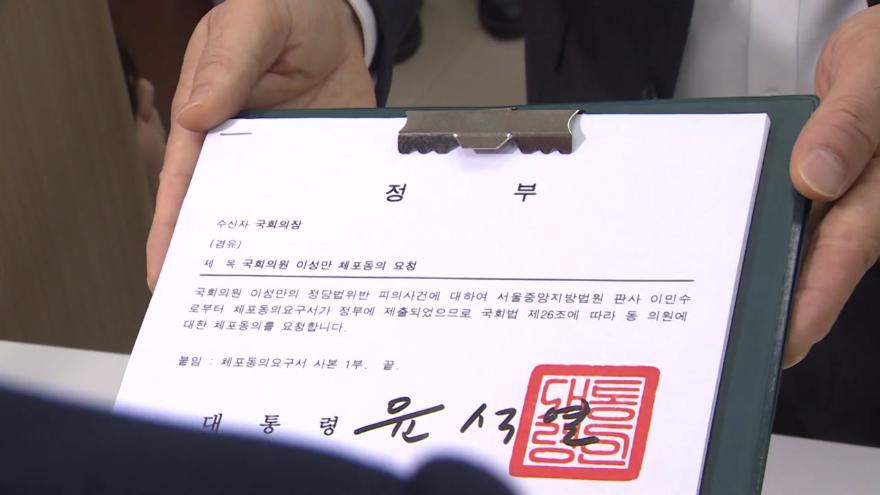 정 부
수신자 국회의장
(경유)
제 목 국회의원 이성만 체포동의 요청
국회의원 이성만의 정당법위반 피의사건에 대하여 서울중앙지방법원 판사 이민수
로부터 체포동의요구서가 정부에 제출되었으므로 국회법 제26조에 따라 동 의원에
대한 체포동의를 요청합니다.
붙임 : 체포동의요구서 사본 1부. 끝.
대 통 령 윤 석 열
대통령인